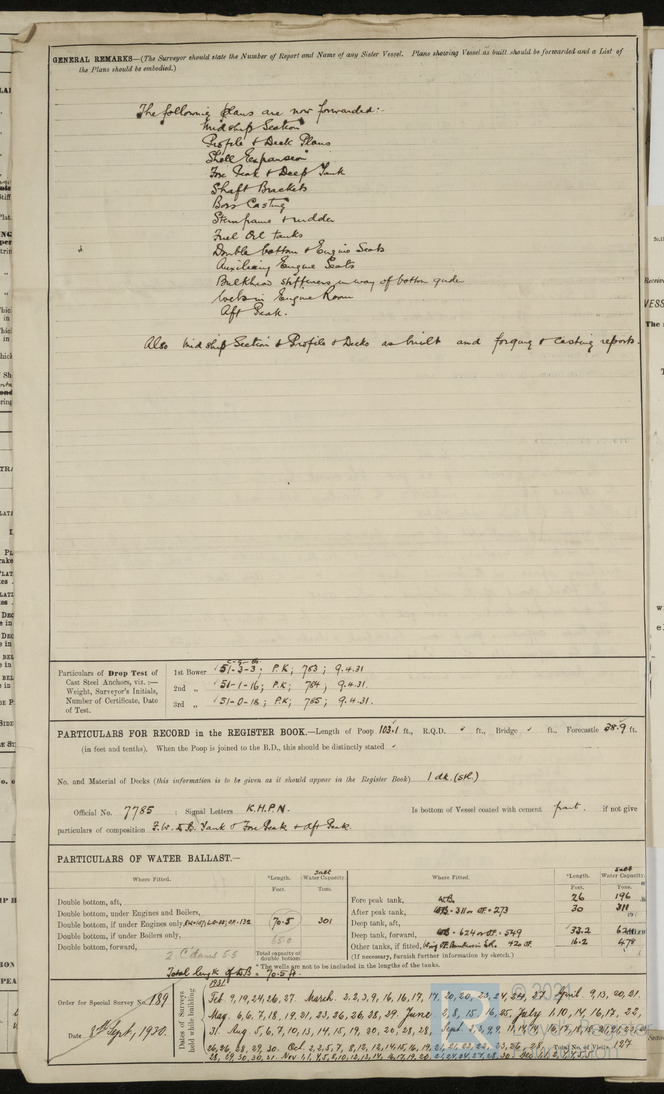 GENERAL REMARKS—(The Surveyor should state the Number of Report and Name of any Sister Vessel. Plans showing Vessel as built should be forwarded and a List of
the Plans should be embodied.)
The following plans are now forwarded:-
Midship Section
Profile & Deck Plans
Shell Expansion
Fore Peak & Deep Tank
Shaft Brackets
Boss Casting
Sternframe & rudder
Fuel Oil tanks
Double bottom & Engine Seats
Auxiliary Engine Seats
Bulkhead stiffeners in way of bottom girder
Webs in Engine Room
Aft Peak.
Also Midship Section & Profile & Decks as built and forging & casting reports.
Particulars of Drop Test of
Cast Steel Anchors, viz. :—
Weight, Surveyor's Initials,
Number of Certificate, Date
of Test.
1st Bower 51-3-3; P.K; 783; 9.4.31
2nd „ 51-1-16; P.K; 784; 9.4.31.
3rd „ 51-0-18; P.K; 785; 9.4.31.
PARTICULARS FOR RECORD in the REGISTER BOOK.—Length of Poop 103.1 ft., R.Q.D. ft., Bridge ft., Forecastle 38.9 ft.
(in feet and tenths). When the Poop is joined to the B.D., this should be distinctly stated
No. and Material of Decks (this information is to be given as it should appear in the Register Book) 1 dk. (stl.)
Official No. 7785 ; Signal Letters K.H.P.N. Is bottom of Vessel coated with cement part. if not give
particulars of composition F.W. D.B. Tank & Fore Peak & Aft Peak.
PARTICULARS OF WATER BALLAST.—
Where Fitted. *Length. Salt Water Capacity.
Feet. Tons.
Double bottom, aft,
Double bottom, under Engines and Boilers,
Double bottom, if under Engines only, 70.5 301
Double bottom, if under Boilers only,
Double bottom, forward,
Total capacity of double bottom
Total length of D.B. = 70.5 ft.
Where Fitted. *Length. Salt Water Capacity.
Feet. Tons.
Fore peak tank, W.B. 26 196
After peak tank, 273 30 311
Deep tank, aft,
Deep tank, forward, 624 or OF. 549 33.2
Other tanks, if fitted, 16.2 478
(If necessary, furnish further information by sketch.)
* The wells are not to be included in the lengths of the tanks.
Order for Special Survey No. 189
Date Sept, 1930.
Dates of Surveys held while building
1931
Feb. 9, 19, 24, 26, 27. March. 2, 3, 9, 16, 16, 17, 17, 20, 20, 23, 24, 24, 27. April. 9, 13, 20, 21.
May. 6, 6, 7, 18, 19, 21, 23, 26, 26, 28, 29. June. 2, 8, 15, 16, 25, July 1, 10, 14, 16, 17, 22,
31. Aug. 5, 6, 7, 10, 13, 14, 15, 19, 20, 20, 28, 28,
Total No. of Visits 127